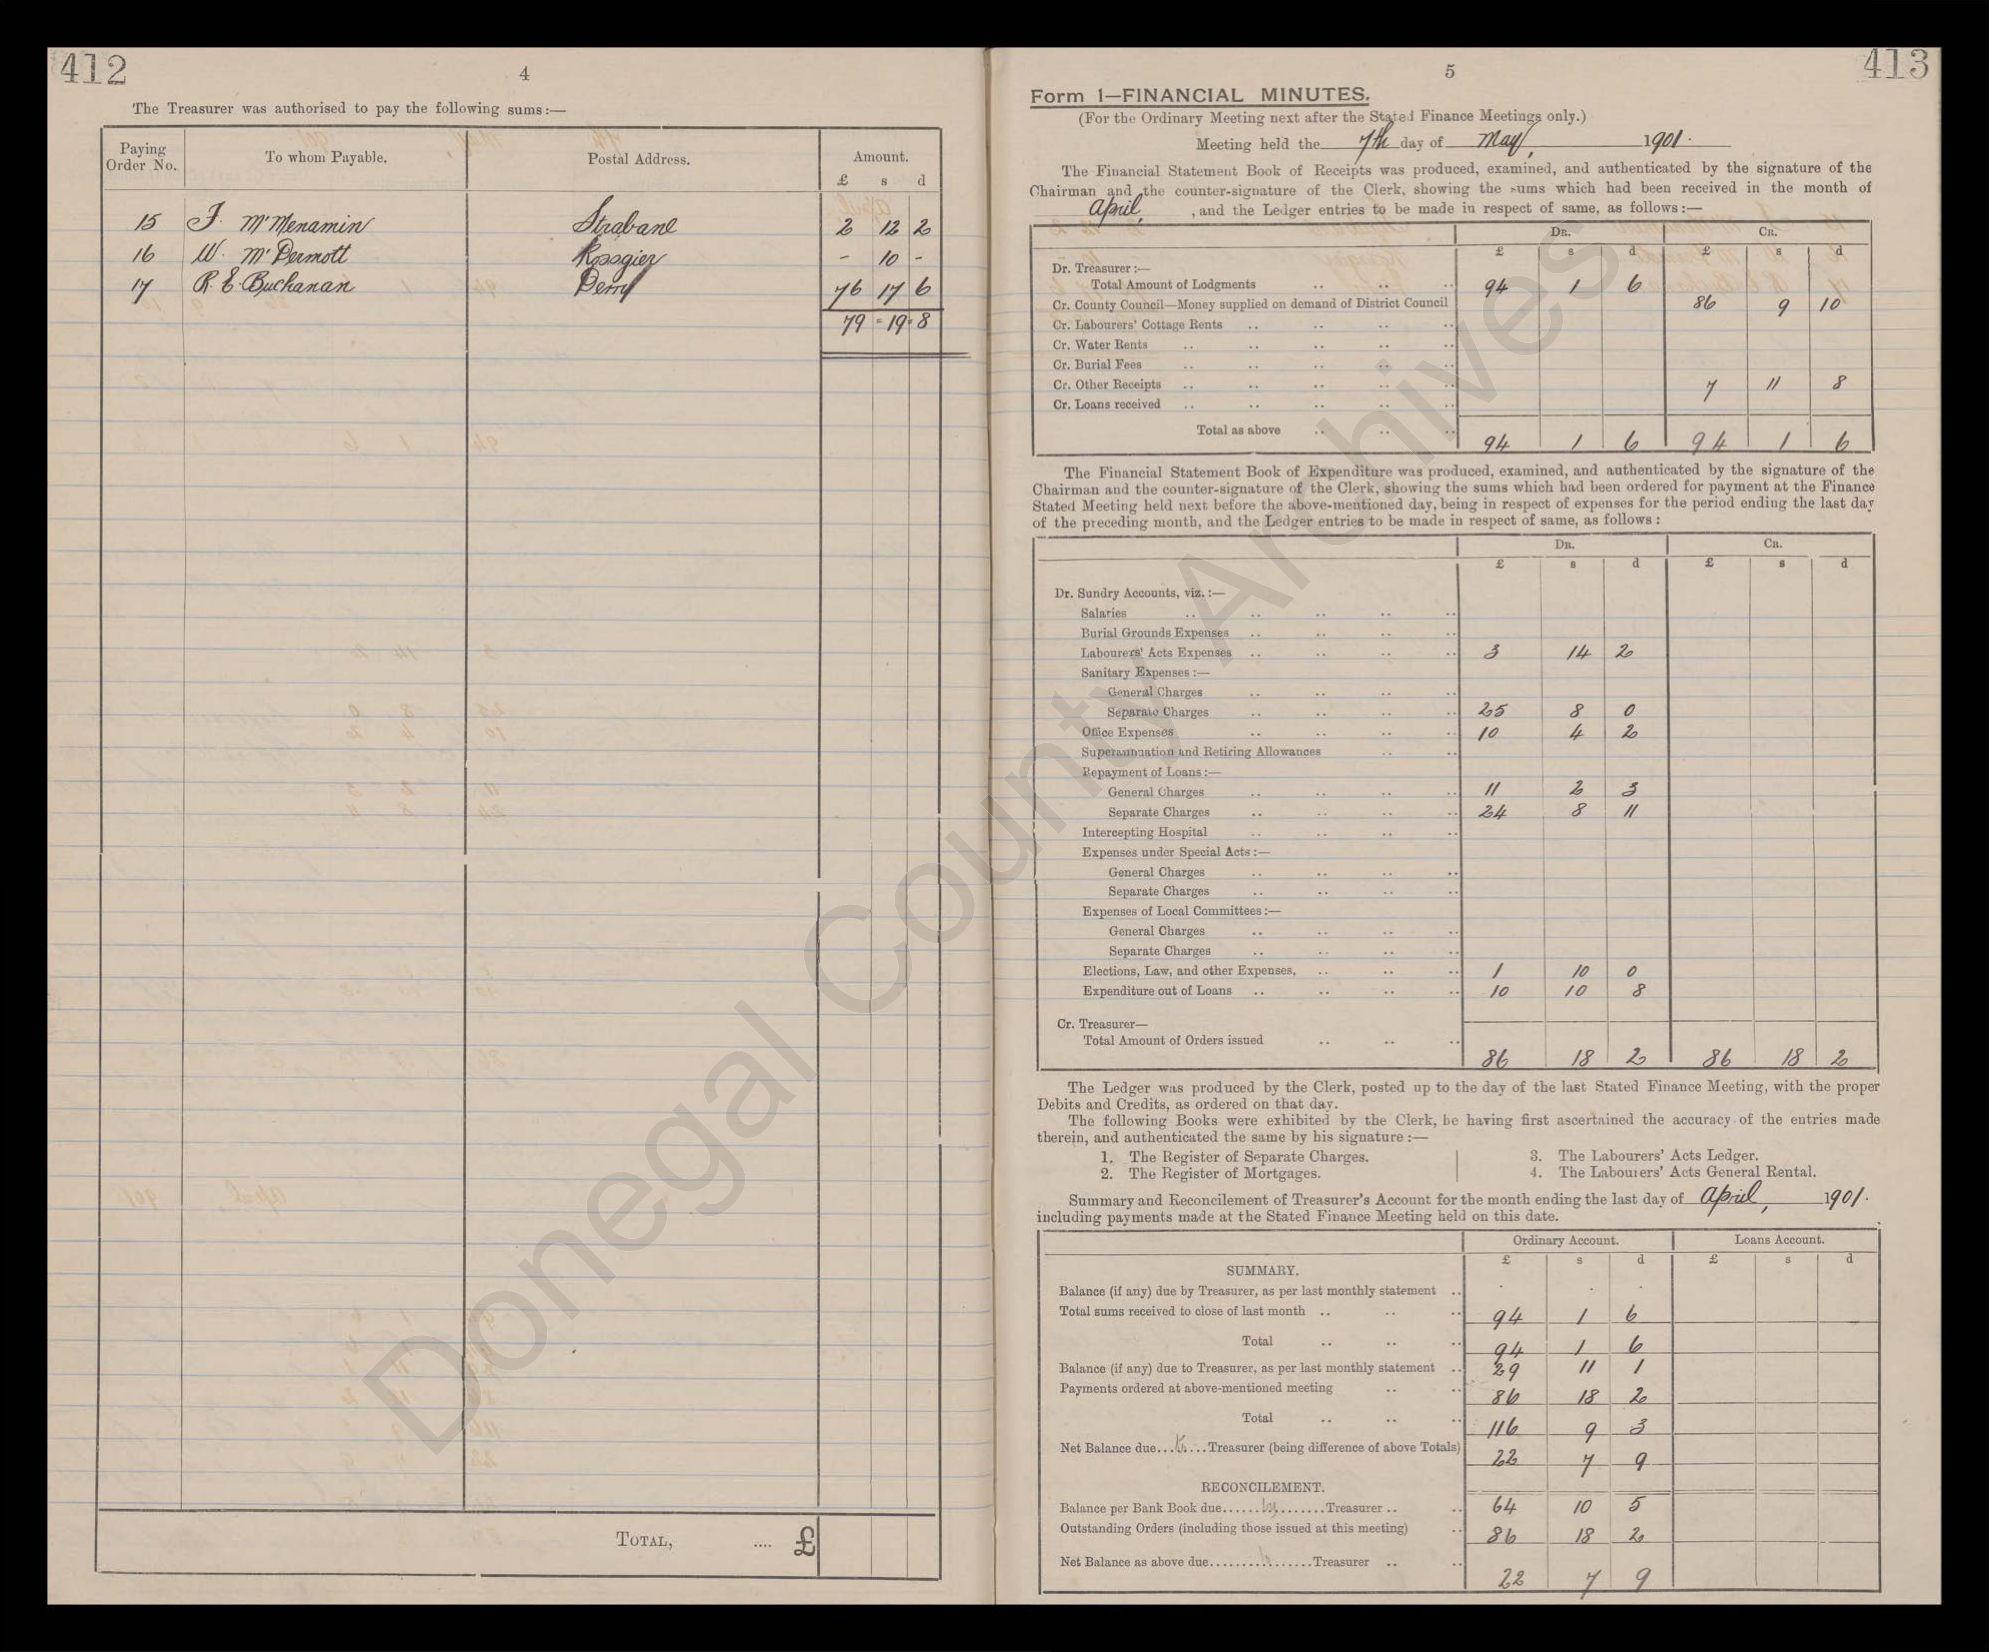 412
4
The Treasurer was authorised to pay the following sums:—
Paying Order No. To whom Payable. Postal Address. Amount.
£ s d
15 J. McMenamin Strabane 2 12 2
16 W. McDermott Rossgier - 10 -
17 R. E. Buchanan Derry 76 17 6
79 = 19 = 8
Total, .... £
413
5
Form 1—FINANCIAL MINUTES.
(For the Ordinary Meeting next after the Stated Finance Meetings only.)
Meeting held the 7th day of May, 1901.
The Financial Statement Book of Receipts was produced, examined, and authenticated by the signature of the
Chairman and the counter-signature of the Clerk, showing the sums which had been received in the month of
April, , and the Ledger entries to be made in respect of same, as follows:—
Dr. Cr.
£ s d £ s d
Dr. Treasurer:—
Total Amount of Lodgments .. .. .. 94 1 6
Cr. County Council—Money supplied on demand of District Council 86 9 10
Cr. Labourers' Cottage Rents .. .. .. ..
Cr. Water Rents .. .. .. .. ..
Cr. Burial Fees .. .. .. .. ..
Cr. Other Receipts .. .. .. .. .. 7 11 8
Cr. Loans received .. .. .. .. ..
Total as above .. .. .. 94 1 6 94 1 6
The Financial Statement Book of Expenditure was produced, examined, and authenticated by the signature of the
Chairman and the counter-signature of the Clerk, showing the sums which had been ordered for payment at the Finance
Stated Meeting held next before the above-mentioned day, being in respect of expenses for the period ending the last day
of the preceding month, and the Ledger entries to be made in respect of same, as follows:
Dr. Cr.
£ s d £ s d
Dr. Sundry Accounts, viz.:—
Salaries .. .. .. .. ..
Burial Grounds Expenses .. .. .. ..
Labourers' Acts Expenses .. .. .. .. 3 14 2
Sanitary Expenses:—
General Charges .. .. .. ..
Separate Charges .. .. .. .. 25 8 0
Office Expenses .. .. .. .. 10 4 2
Superannuation and Retiring Allowances .. ..
Repayment of Loans:—
General Charges .. .. .. .. 11 2 3
Separate Charges .. .. .. .. 24 8 11
Intercepting Hospital .. .. .. ..
Expenses under Special Acts:—
General Charges .. .. .. ..
Separate Charges .. .. .. ..
Expenses of Local Committees:—
General Charges .. .. .. ..
Separate Charges .. .. .. ..
Elections, Law, and other Expenses, .. .. .. 1 10 0
Expenditure out of Loans .. .. .. .. 10 10 8
Cr. Treasurer—
Total Amount of Orders issued .. .. .. 86 18 2 86 18 2
The Ledger was produced by the Clerk, posted up to the day of the last Stated Finance Meeting, with the proper
Debits and Credits, as ordered on that day.
The following Books were exhibited by the Clerk, he having first ascertained the accuracy of the entries made
therein, and authenticated the same by his signature:—
1. The Register of Separate Charges. 3. The Labourers' Acts Ledger.
2. The Register of Mortgages. 4. The Labourers' Acts General Rental.
Summary and Reconcilement of Treasurer's Account for the month ending the last day of April, 1901.
including payments made at the Stated Finance Meeting held on this date.
Ordinary Account. Loans Account.
£ s d £ s d
SUMMARY.
Balance (if any) due by Treasurer, as per last monthly statement .. . . .
Total sums received to close of last month .. .. .. 94 1 6
Total .. .. .. 94 1 6
Balance (if any) due to Treasurer, as per last monthly statement .. 29 11 1
Payments ordered at above-mentioned meeting .. .. 86 18 2
Total .. .. .. 116 9 3
Net Balance due...to....Treasurer (being difference of above Totals) 22 7 9
RECONCILEMENT.
Balance per Bank Book due......by.......Treasurer .. .. 64 10 5
Outstanding Orders (including those issued at this meeting) .. 86 18 2
Net Balance as above due........to.......Treasurer .. .. 22 7 9
Donegal County Archives